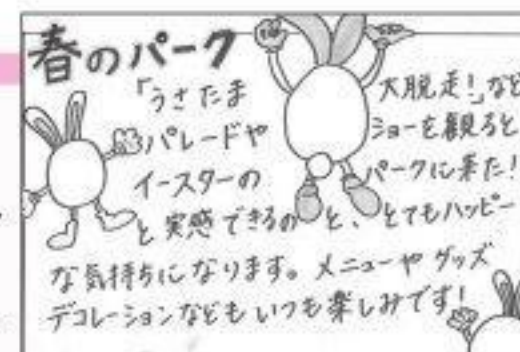 春のパーク
「うさたま 大脱走!」など
パレードや ショーを観ると
イースターの パークに来た!
と実感できるのと、とてもハッピー
な気持ちになります。メニューや グッズ
デコレーションなどもいつも楽しみです!